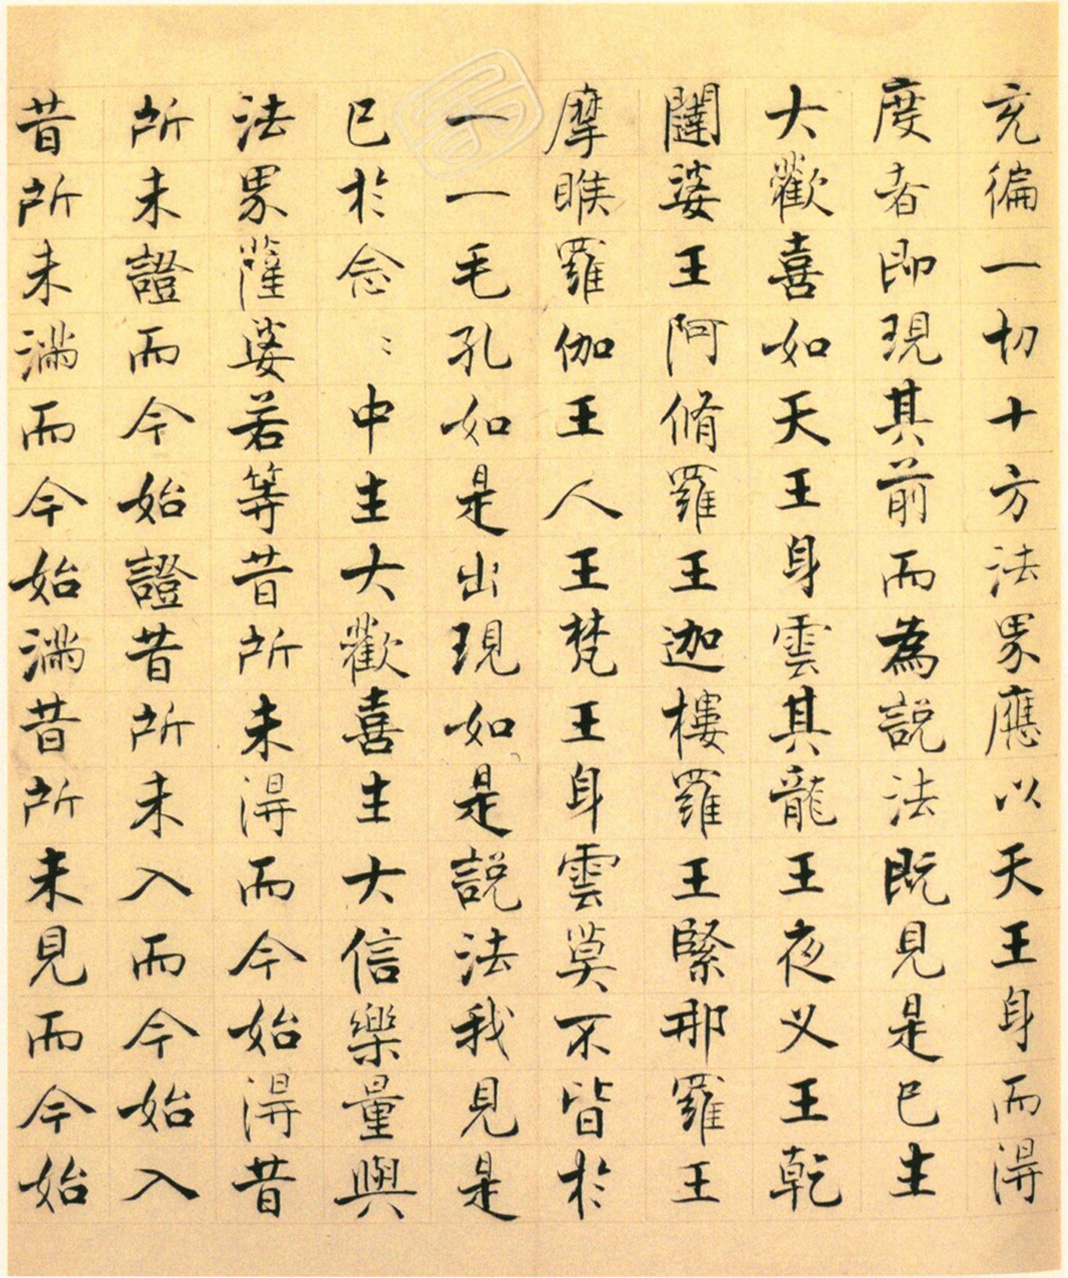 充徧一切十方法界應以天王身而得
度者即現其前而為説法既見是已生
大歡喜如天王身雲其龍王夜义王乾
闥婆王阿脩羅王迦樓羅王緊那羅王
摩睺羅伽王人王梵王身雲莫不皆於
一一毛孔如是出現如是説法我見是
已於念〻中生大歡喜生大信樂量與
法界薩婆若等昔所未得而今始得昔
所未證而今始證昔所未入而今始入
昔所未滿而今始滿昔所未見而今始